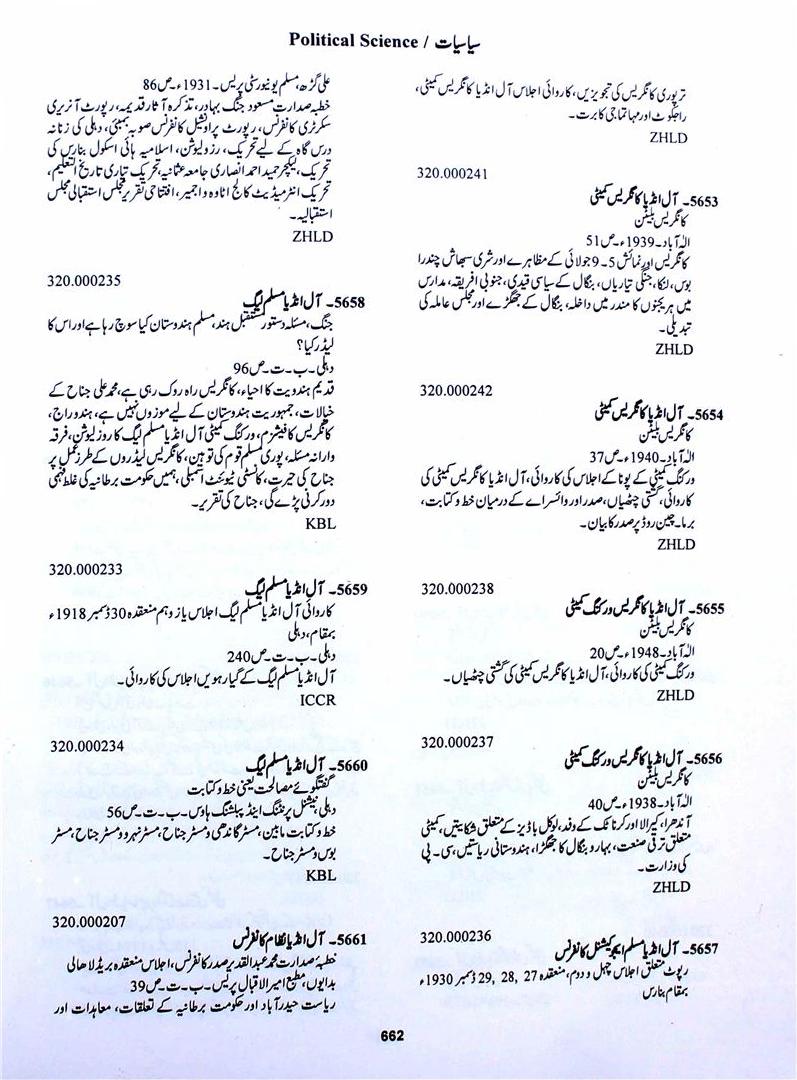 Political Science / سیاسیات
تریپوری کانگریس کی تجویزیں، کاروائی اجلاس آل انڈیا کانگریس کمیٹی،
راجکوٹ اور مہاتما جی کا برت۔
ZHLD
320.000241
5653۔ آل انڈیا کانگریس کمیٹی
کانگریس بلیٹن
الہ آباد۔ 1939ء۔ ص51
کانگریس اور نمائش 5۔9 جولائی کے مظاہرے اور شری سبھاش چندرا
بوس، لنکا، جنگی تیاریاں، بنگال کے سیاسی قیدی، جنوبی افریقہ، مدارس
میں ہریجنوں کا مندر میں داخلہ، بنگال کے جھگڑے اور مجلس عاملہ کی
تبدیلی۔
ZHLD
320.000242
5654۔ آل انڈیا کانگریس کمیٹی
کانگریس بلیٹن
الہ آباد۔ 1940ء۔ ص37
ورکنگ کمیٹی کے پونا کے اجلاس کی کاروائی، آل انڈیا کانگریس کمیٹی کی
کاروائی، گشتی چٹھیاں، صدر اور وائسرائے کے درمیان خط و کتابت،
برما۔ چین روڈ پر صدر کا بیان۔
ZHLD
320.000238
5655۔ آل انڈیا کانگریس ورکنگ کمیٹی
کانگریس بلیٹن
الہ آباد۔ 1948ء۔ ص20
ورکنگ کمیٹی کی کاروائی، آل انڈیا کانگریس کمیٹی کی گشتی چٹھیاں۔
ZHLD
320.000237
5656۔ آل انڈیا کانگریس ورکنگ کمیٹی
کانگریس بلیٹن
الہ آباد۔ 1938ء۔ ص40
آندھرا، کیرالا اور کرناٹک کے وفد، لوکل باڈیز کے متعلق شکایتیں، کمیٹی
متعلق ترقی صنعت، بہار و بنگال کا جھگڑا، ہندوستانی ریاستیں، سی۔ پی
کی وزارت۔
ZHLD
320.000236
5657۔ آل انڈیا مسلم ایجوکیشنل کانفرنس
رپوٹ متعلق اجلاس چہل و دوم، منعقدہ 27, 28, 29 دسمبر 1930ء
بمقام بنارس
علی گڑھ، مسلم یونیورسٹی پریس۔ 1931ء۔ ص86
خطبہ صدارت مسعود جنگ بہادر، تذکرہ آثار قدیمہ، رپورٹ آنریری
سکرٹری کانفرنس، رپورٹ پراونشیل کانفرنس صوبہ بمبئی، دہلی کی زنانہ
درس گاہ کے لیے تحریک، رزولیوشن، اسلامیہ ہائی اسکول بنارس کی
تحریک، لیکچر حمید احمد انصاری جامعہ عثمانیہ، تحریک تیاری تاریخ التعلیم،
تحریک انٹرمیڈیٹ کالج اٹاوہ و اجمیر، افتتاحی تقریر مجلس استقبالی مجلس
استقبالیہ۔
ZHLD
320.000235
5658۔ آل انڈیا مسلم لیگ
جنگ، مسئلہ دستور مستقبل ہند، مسلم ہندوستان کیا سوچ رہا ہے اور اس کا
لیڈر کیا؟
دہلی۔ ب۔ ت۔ ص96
قدیم ہندویت کا احیاء، کانگریس راہ روک رہی ہے، محمد علی جناح کے
خیالات، جمہوریت ہندوستان کے لیے موزوں نہیں ہے، ہندو راج،
کانگریس کا فیشزم، ورکنگ کمیٹی آل انڈیا مسلم لیگ کا روزلیوشن، فرقہ
وارانہ مسئلہ، پوری مسلم قوم کی توہین، کانگریس لیڈروں کے طرز عمل پر
جناح کی حیرت، کانسٹی ٹیوئنٹ اسمبلی، ہمیں حکومت برطانیہ کی غلط فہمی
دور کرنی پڑے گی، جناح کی تقریر۔
KBL
320.000233
5659۔ آل انڈیا مسلم لیگ
کاروائی آل انڈیا مسلم لیگ اجلاس یازدہم منعقدہ 30 دسمبر 1918ء
بمقام، دہلی
دہلی۔ ب۔ ت۔ ص240
آل انڈیا مسلم لیگ کے گیارہویں اجلاس کی کاروائی۔
ICCR
320.000234
5660۔ آل انڈیا مسلم لیگ
گفتگوئے مصالحت یعنی خط و کتابت
دہلی، نیشنل پرنٹنگ اینڈ پبلشنگ ہاوس۔ ب۔ ت۔ ص56
خط و کتابت مابین، مسٹر گاندھی و مسٹر جناح، مسٹر نہرو و مسٹر جناح، مسٹر
بوس و مسٹر جناح۔
KBL
320.000207
5661۔ آل انڈیا نظام کانفرنس
خطبۂ صدارت محمد عبد القدیر صدر کانفرنس، اجلاس منعقدہ بریڈلا ھالی
بدایوں، مطبع امیر الاقبال پریس۔ ب۔ ت۔ ص39
ریاست حیدرآباد اور حکومت برطانیہ کے تعلقات، معاہدات اور
662